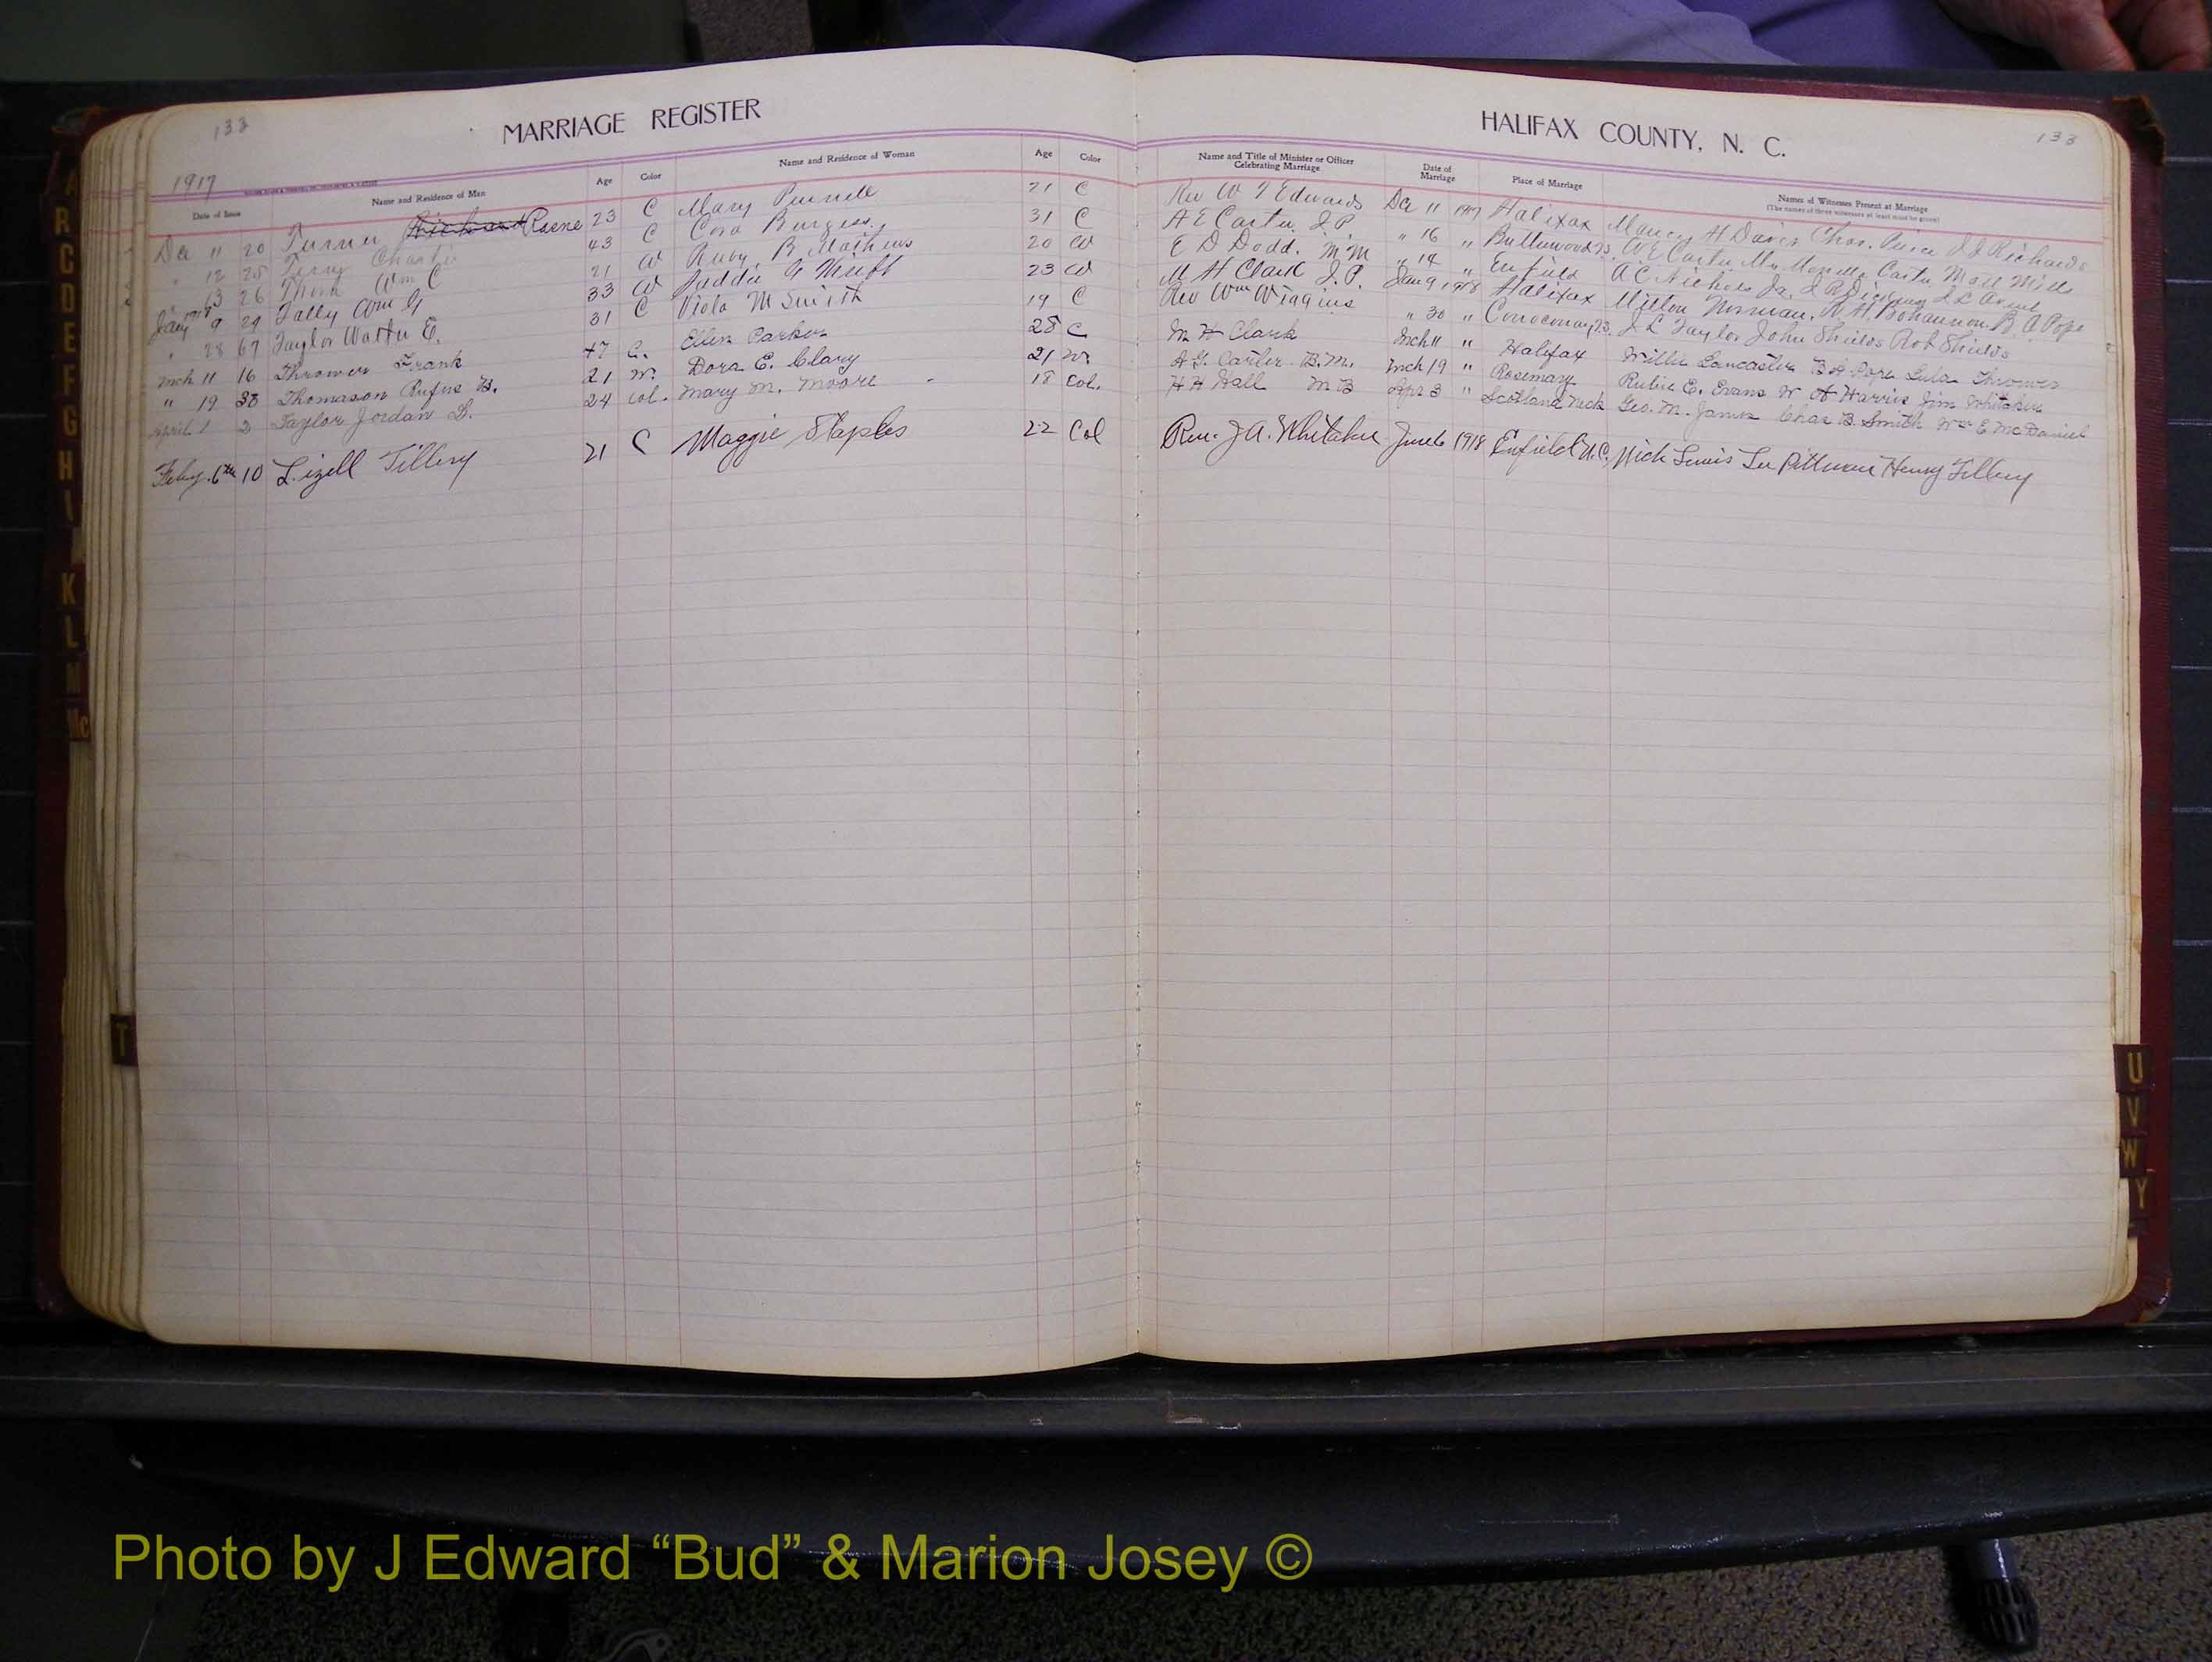 133
MARRIAGE REGISTER
1917
Date of Issue Name and Residence of Man Age Color Name and Residence of Woman Age Color
Dec 11 20 Turner Richard Roene 23 C Mary 21 C
" 12 25 Terry Charlie 43 C Cora Burgess 31 C
" 13 26 Wm C 21 W Ruby B Mathews 20 W
1918
Jany 9 29 Tally Wm G 33 W A Thrift 23 W
" 28 67 Taylor Walter E. 31 C Viola M Smith 19 C
Mch 11 16 Thrower Frank 47 C. Ellen Parker 28 C
" 19 38 Thomason Rufus 21 W. Dora E. Clary 21 W.
April 1 2 Taylor Jordan 24 Col. Mary M. Moore 18 Col.
Feby. 6th 10 Lizell Tillery 21 C Maggie Staples 22 Col
HALIFAX COUNTY, N. C.
133
Name and Title of Minister or Officer Celebrating Marriage Date of Marriage Place of Marriage Names of Witnesses Present at Marriage
(The names of three witnesses at least must be given)
Rev W T Edwards Dec 11 1917 Halifax H Davis Chas. J J Richards
A E Carter J.P. " 16 " A E Carter Carter
E D Dodd. M M " 14 " Enfield A C Nichols
M H Clark J.P. Jan 9 1918 Halifax Milton Norman. W H. Bohannon. B A Pope
Rev Wm Wiggins " 30 " J L Taylor John Shields Rob Shields
M H Clark Mch 11 " Halifax Willie Lancaster B A Pope Lula Thrower
A G. Carter B.M. Mch 19 " Rosemary Rubie E. Evans W A Harris Jim Whitaker
H A Hall M B Apr 3 " Scotland Neck Geo. M. James Chas B. Smith Wm E McDaniel
Rev. J A. Whitaker June 6 1918 Enfield N.C. Nick Lewis Lee Pittman Henry Tillery
A
R
C
D
E
F
G
H
I
K
L
N
Mc
T
U
V
W
Y
Photo by J Edward “Bud” & Marion Josey ©